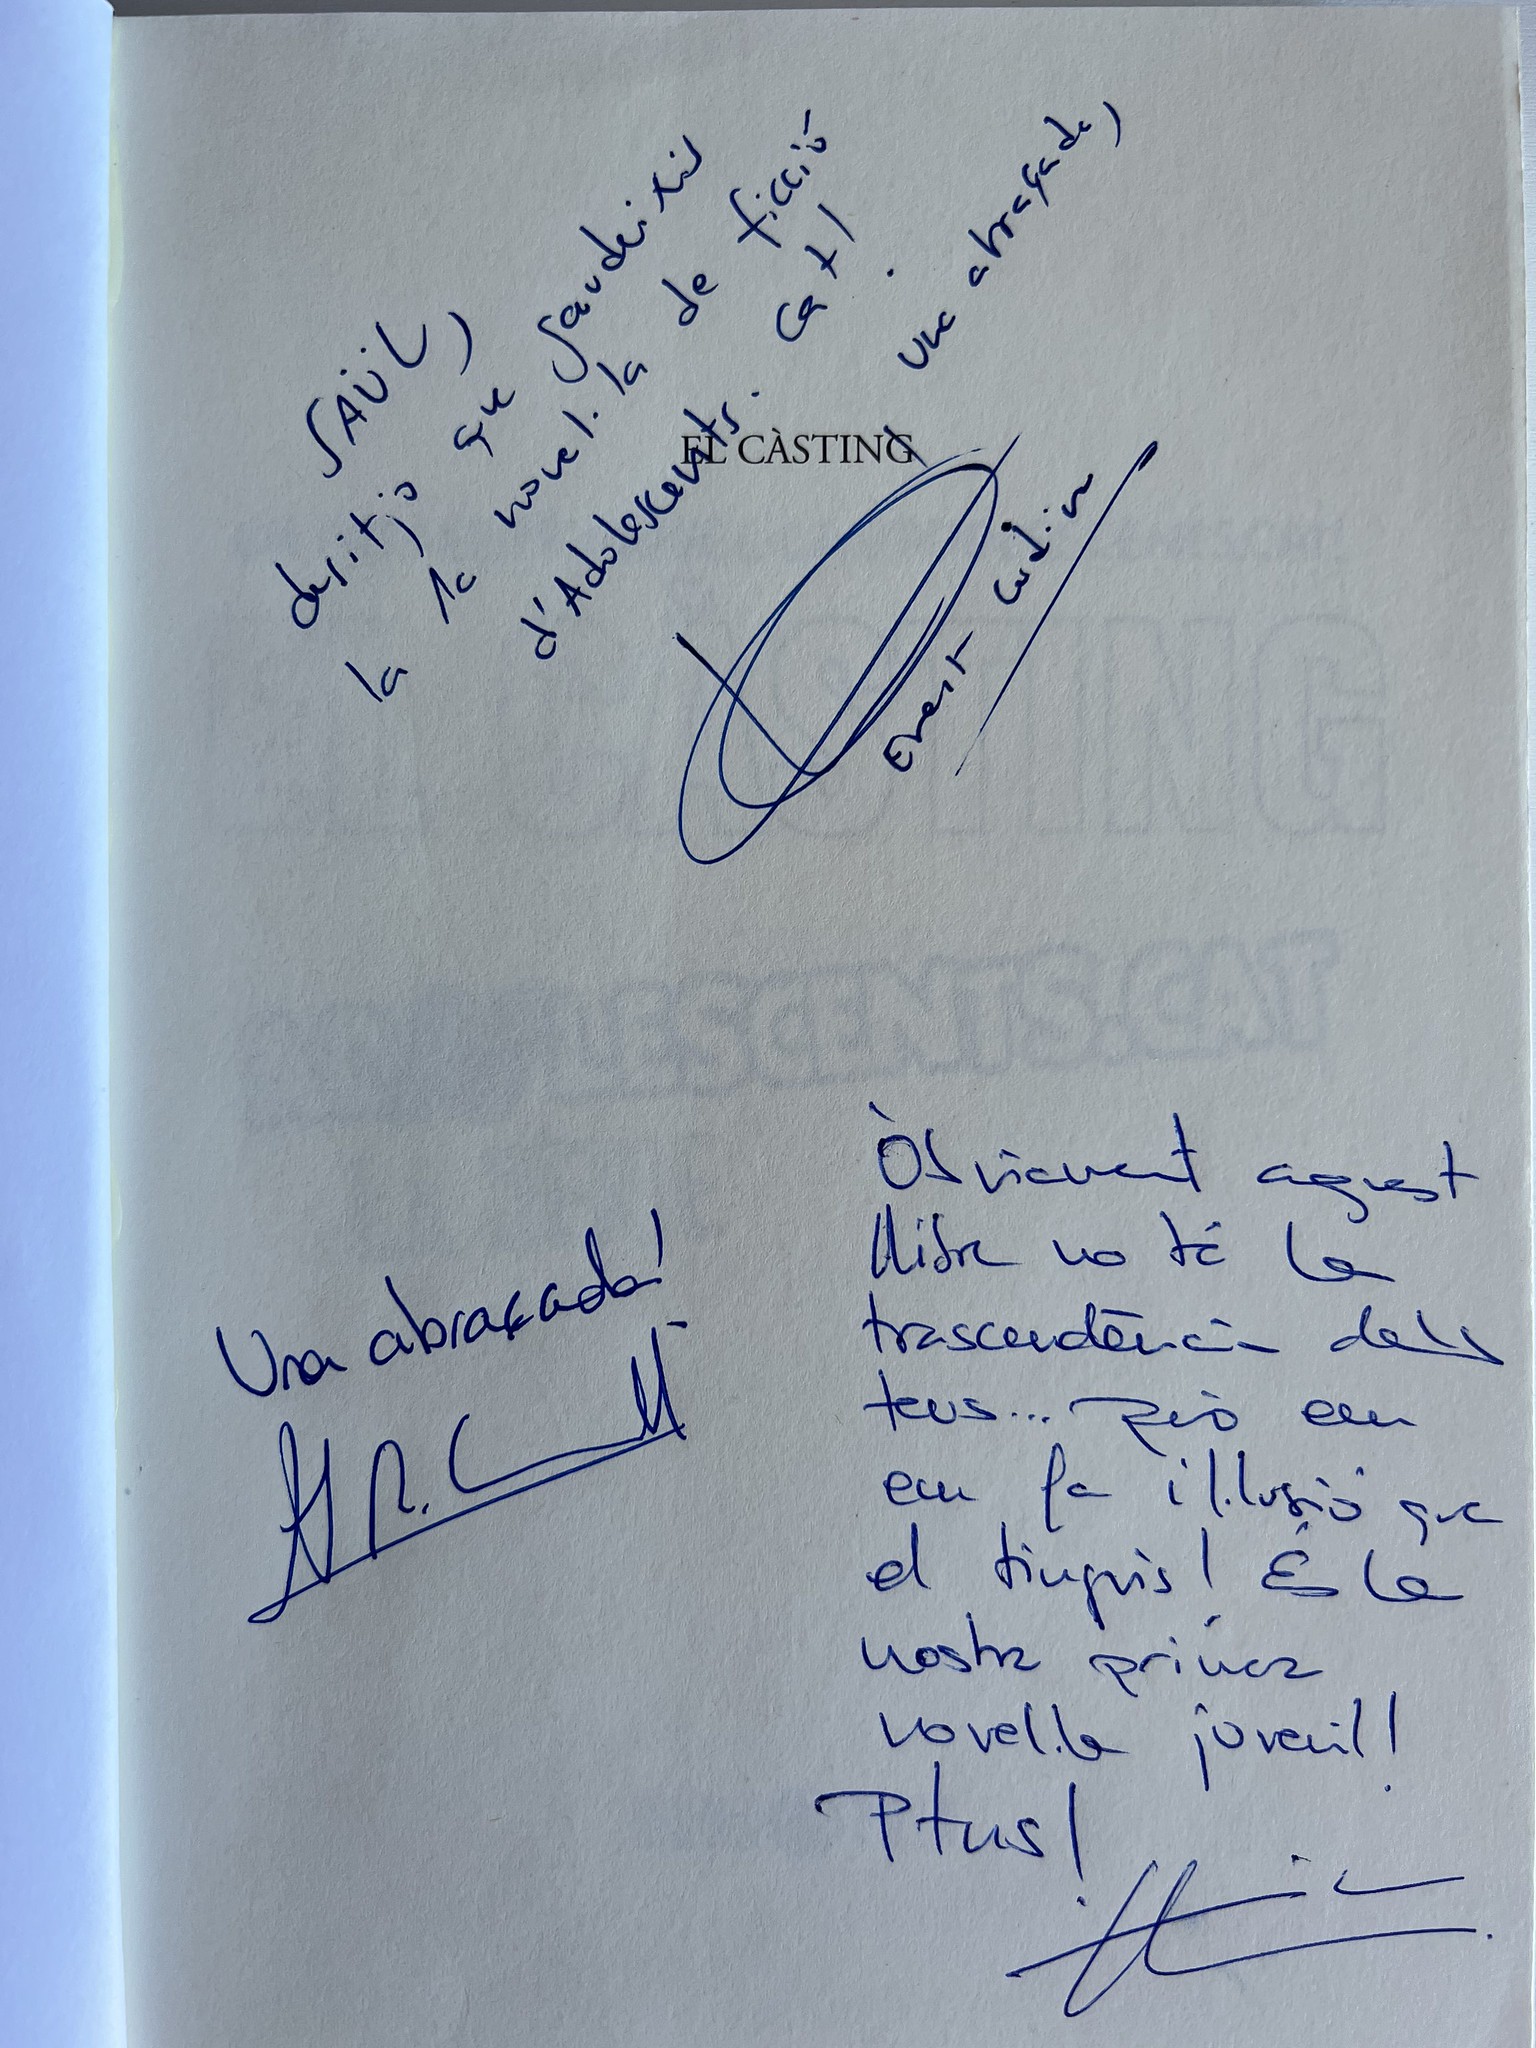 SAÜL,
desitjo que gaudeixis
la 1a novel·la de ficció
d'Adolescents. cat!
una abraçada,
EL CÀSTING
Evarist
Una abraçada!
Òbviament aquest
llibre no té la
trascendència dels
teus... però em
em fa il·lusió que
el tinguis! És la
nostra primera
novel·la juvenil!
Ptns!